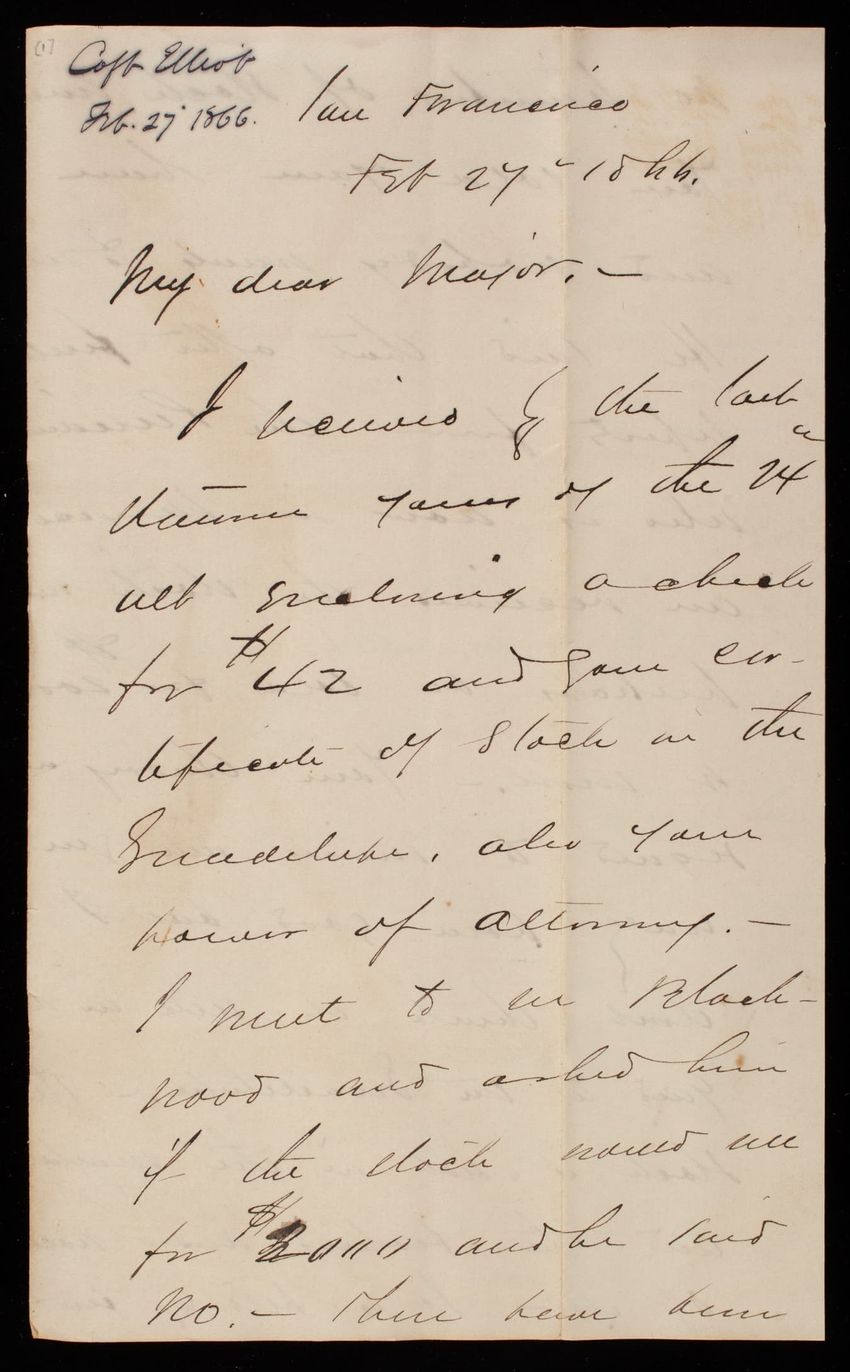 (1)
Capt Elliot
Feb. 27 1866.
San Francisco
Feb 27" 1866.
My dear Major. —
I received by the last
steamer yours of the 24"
ult enclosing a check
for $42 and your cer-
tificate of Stock in the
Guadelupe, also your
power of attorney. —
I went to see Black-
wood and asked him
if the stock would sell
for $2000 and he said
No. — There have been